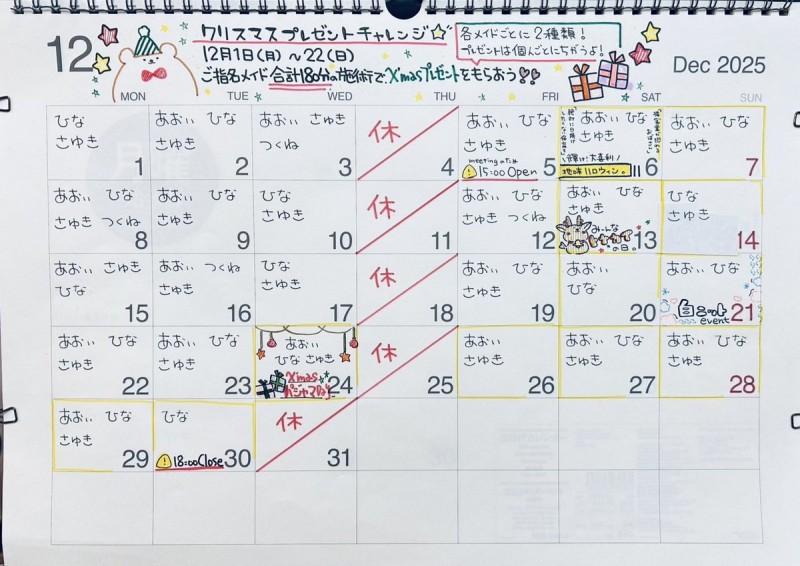 12
クリスマスプレゼントチャレンジ
12月1日(月)〜22(日)
ご指名メイド合計180分の施術でX'masプレゼントをもらおう
各メイドごとに2種類!
プレゼントは個人ごとにちがうよ!
Dec 2025
MON TUE WED THU FRI SAT SUN
ひな
さゆき
1
あおい ひな
さゆき
2
あおい さゆき
つくね
3
休
4
あおい ひな
さゆき
meetingのため
15:00 Open
5
あおい ひな
さゆき
謎解け!大喜利!
地味ハロウィン。
6
あおい ひな
さゆき
7
あおい ひな
さゆき つくね
8
あおい ひな
さゆき
9
ひな
さゆき
10
休
11
あおい ひな
さゆき つくね
12
あおい ひな
さゆき
みーんな
の日。
13
ひな
さゆき
14
あおい さゆき
ひな
15
あおい つくね
さゆき
16
ひな
さゆき
17
休
18
あおい ひな
さゆき
19
あおい
ひな
20
あおい ひな
event
21
あおい ひな
さゆき
22
あおい ひな
さゆき
23
あおい
ひな さゆき
X'mas
パジャマDay
24
休
25
あおい
さゆき
26
あおい ひな
さゆき
27
あおい ひな
さゆき
28
あおい ひな
さゆき
29
ひな
18:00 Close
30
休
31